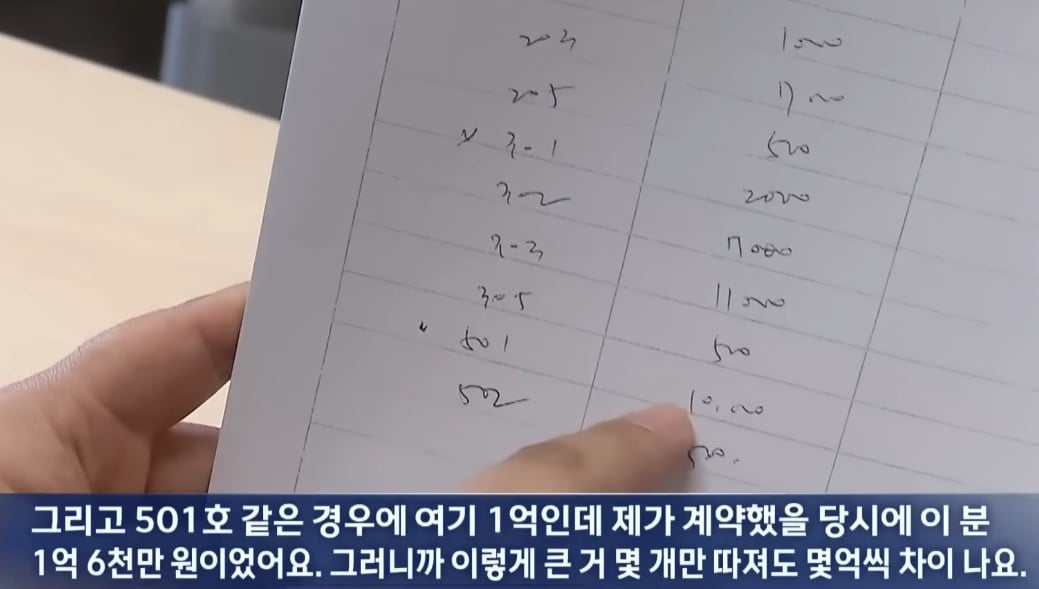 203 1000
205 7000
3-1 500
3-2 2000
3-3 7000
305 11000
501 500
502 10.000
500.
그리고 501호 같은 경우에 여기 1억인데 제가 계약했을 당시에 이 분
1억 6천만 원이었어요. 그러니까 이렇게 큰 거 몇 개만 따져도 몇억씩 차이 나요.